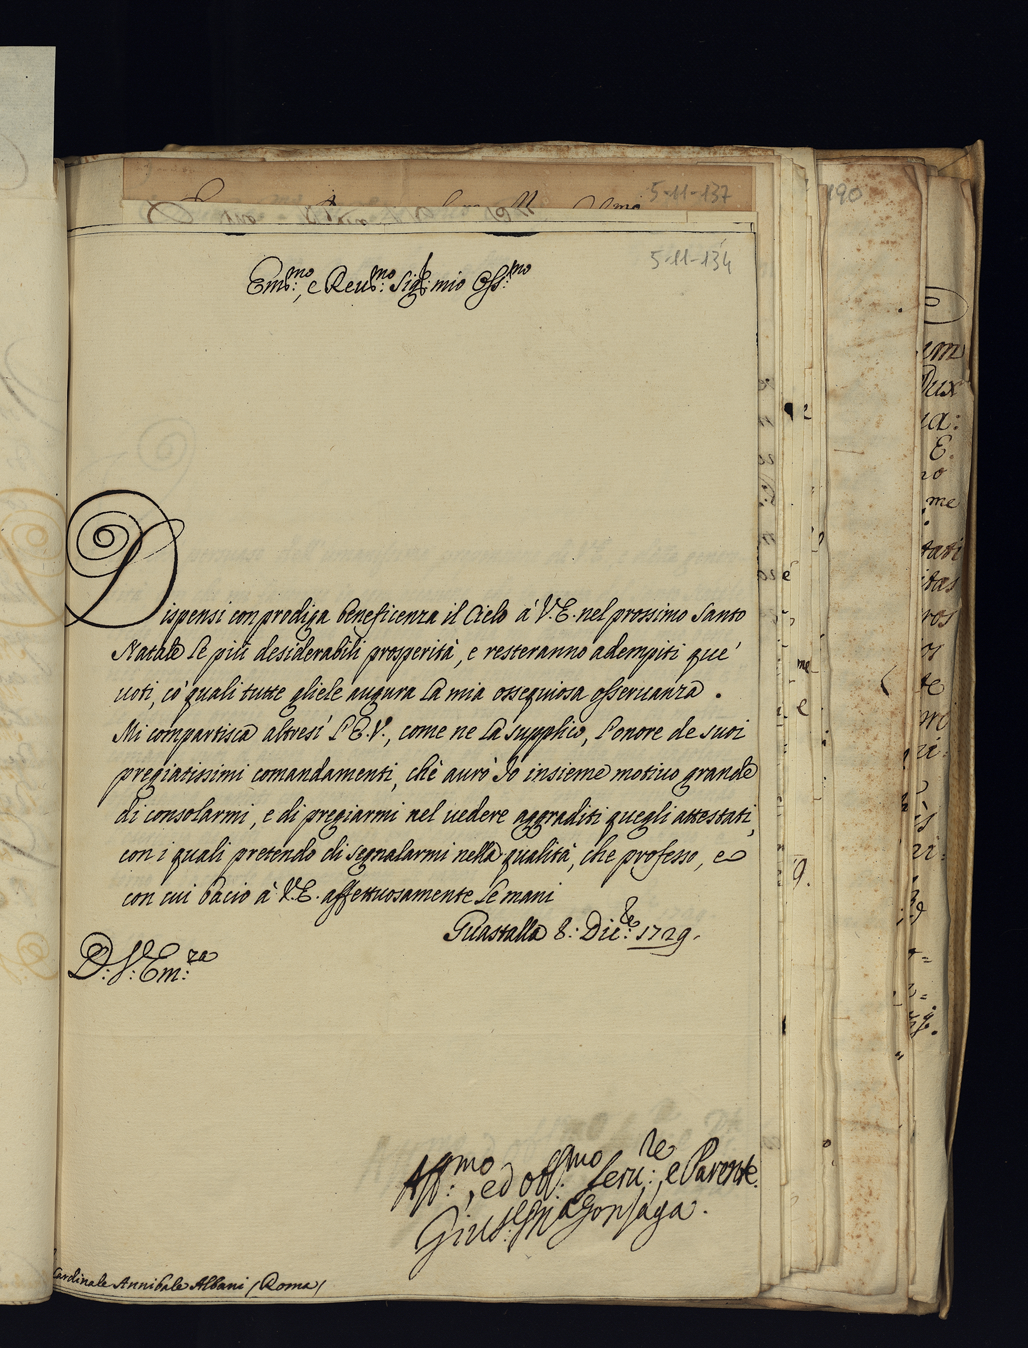 5-11-137
190
5-11-134
Em:mo, e Reu:mo Sig:r mio Oss:mo
Dispensi con prodiga beneficenza il Cielo á V.E. nel prossimo Santo
Natale le più desiderabili prosperità, e resteranno adempiti que'
uoti, co' quali tutte gliele augura la mia ossequiosa osseruanza.
Mi compartisca altresi l'E.V., come ne la supplico, l'onore de suoi
pregiatissimi comandamenti, chè aurò Io insieme motiuo grande
di consolarmi, e di pregiarmi nel uedere aggraditi quegli attestati,
con i quali pretendo di segnalarmi nella qualità, che professo, e
con cui bacio à V.E. affettuosamente le mani
Guastalla 8: Dic:re 1729.
D: V: Em:za
Aff:mo, ed obl:mo seru:re, e Parente
Gonzaga.
Cardinale Annibale Albani / Roma /